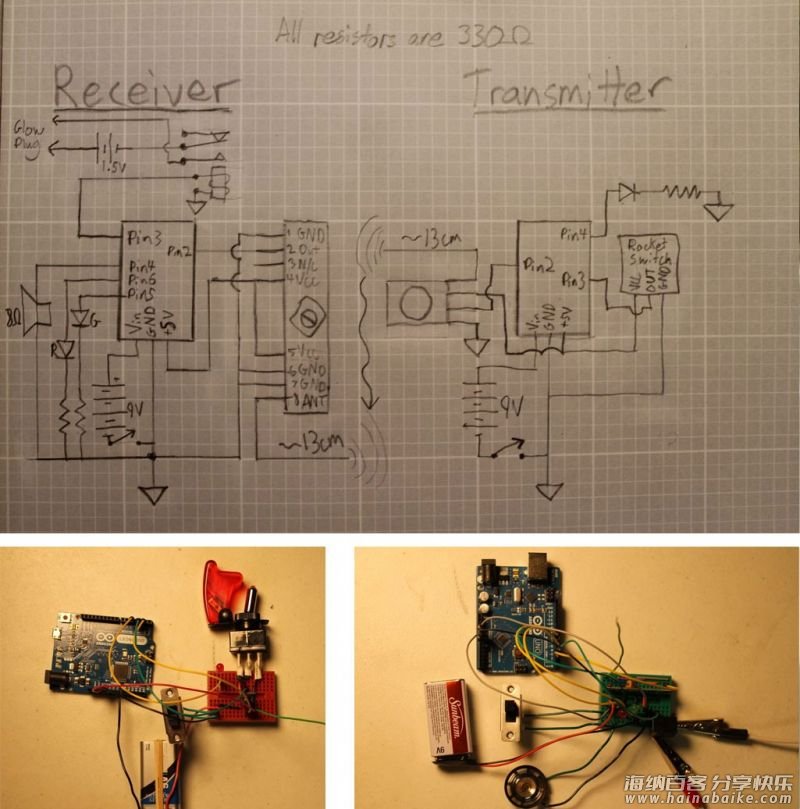 All resistors are 330Ω
Receiver
Transmitter
Glow
Plug
1.5V
Pin3
Pin2
Pin4
Pin6
Pin5
Vin
GND
+5V
8Ω
R
G
9V
1 GND
2 Out
3 N/C
4 Vcc
5 Vcc
6 GND
7 GND
8 ANT
~13cm
~13cm
Pin4
Pin2
Pin3
Vin
GND
+5V
Rocket
Switch
Vcc
OUT
GND
9V
UNO
Sunbeam
9V
海纳百客 分享快乐
www.hainabaike.com